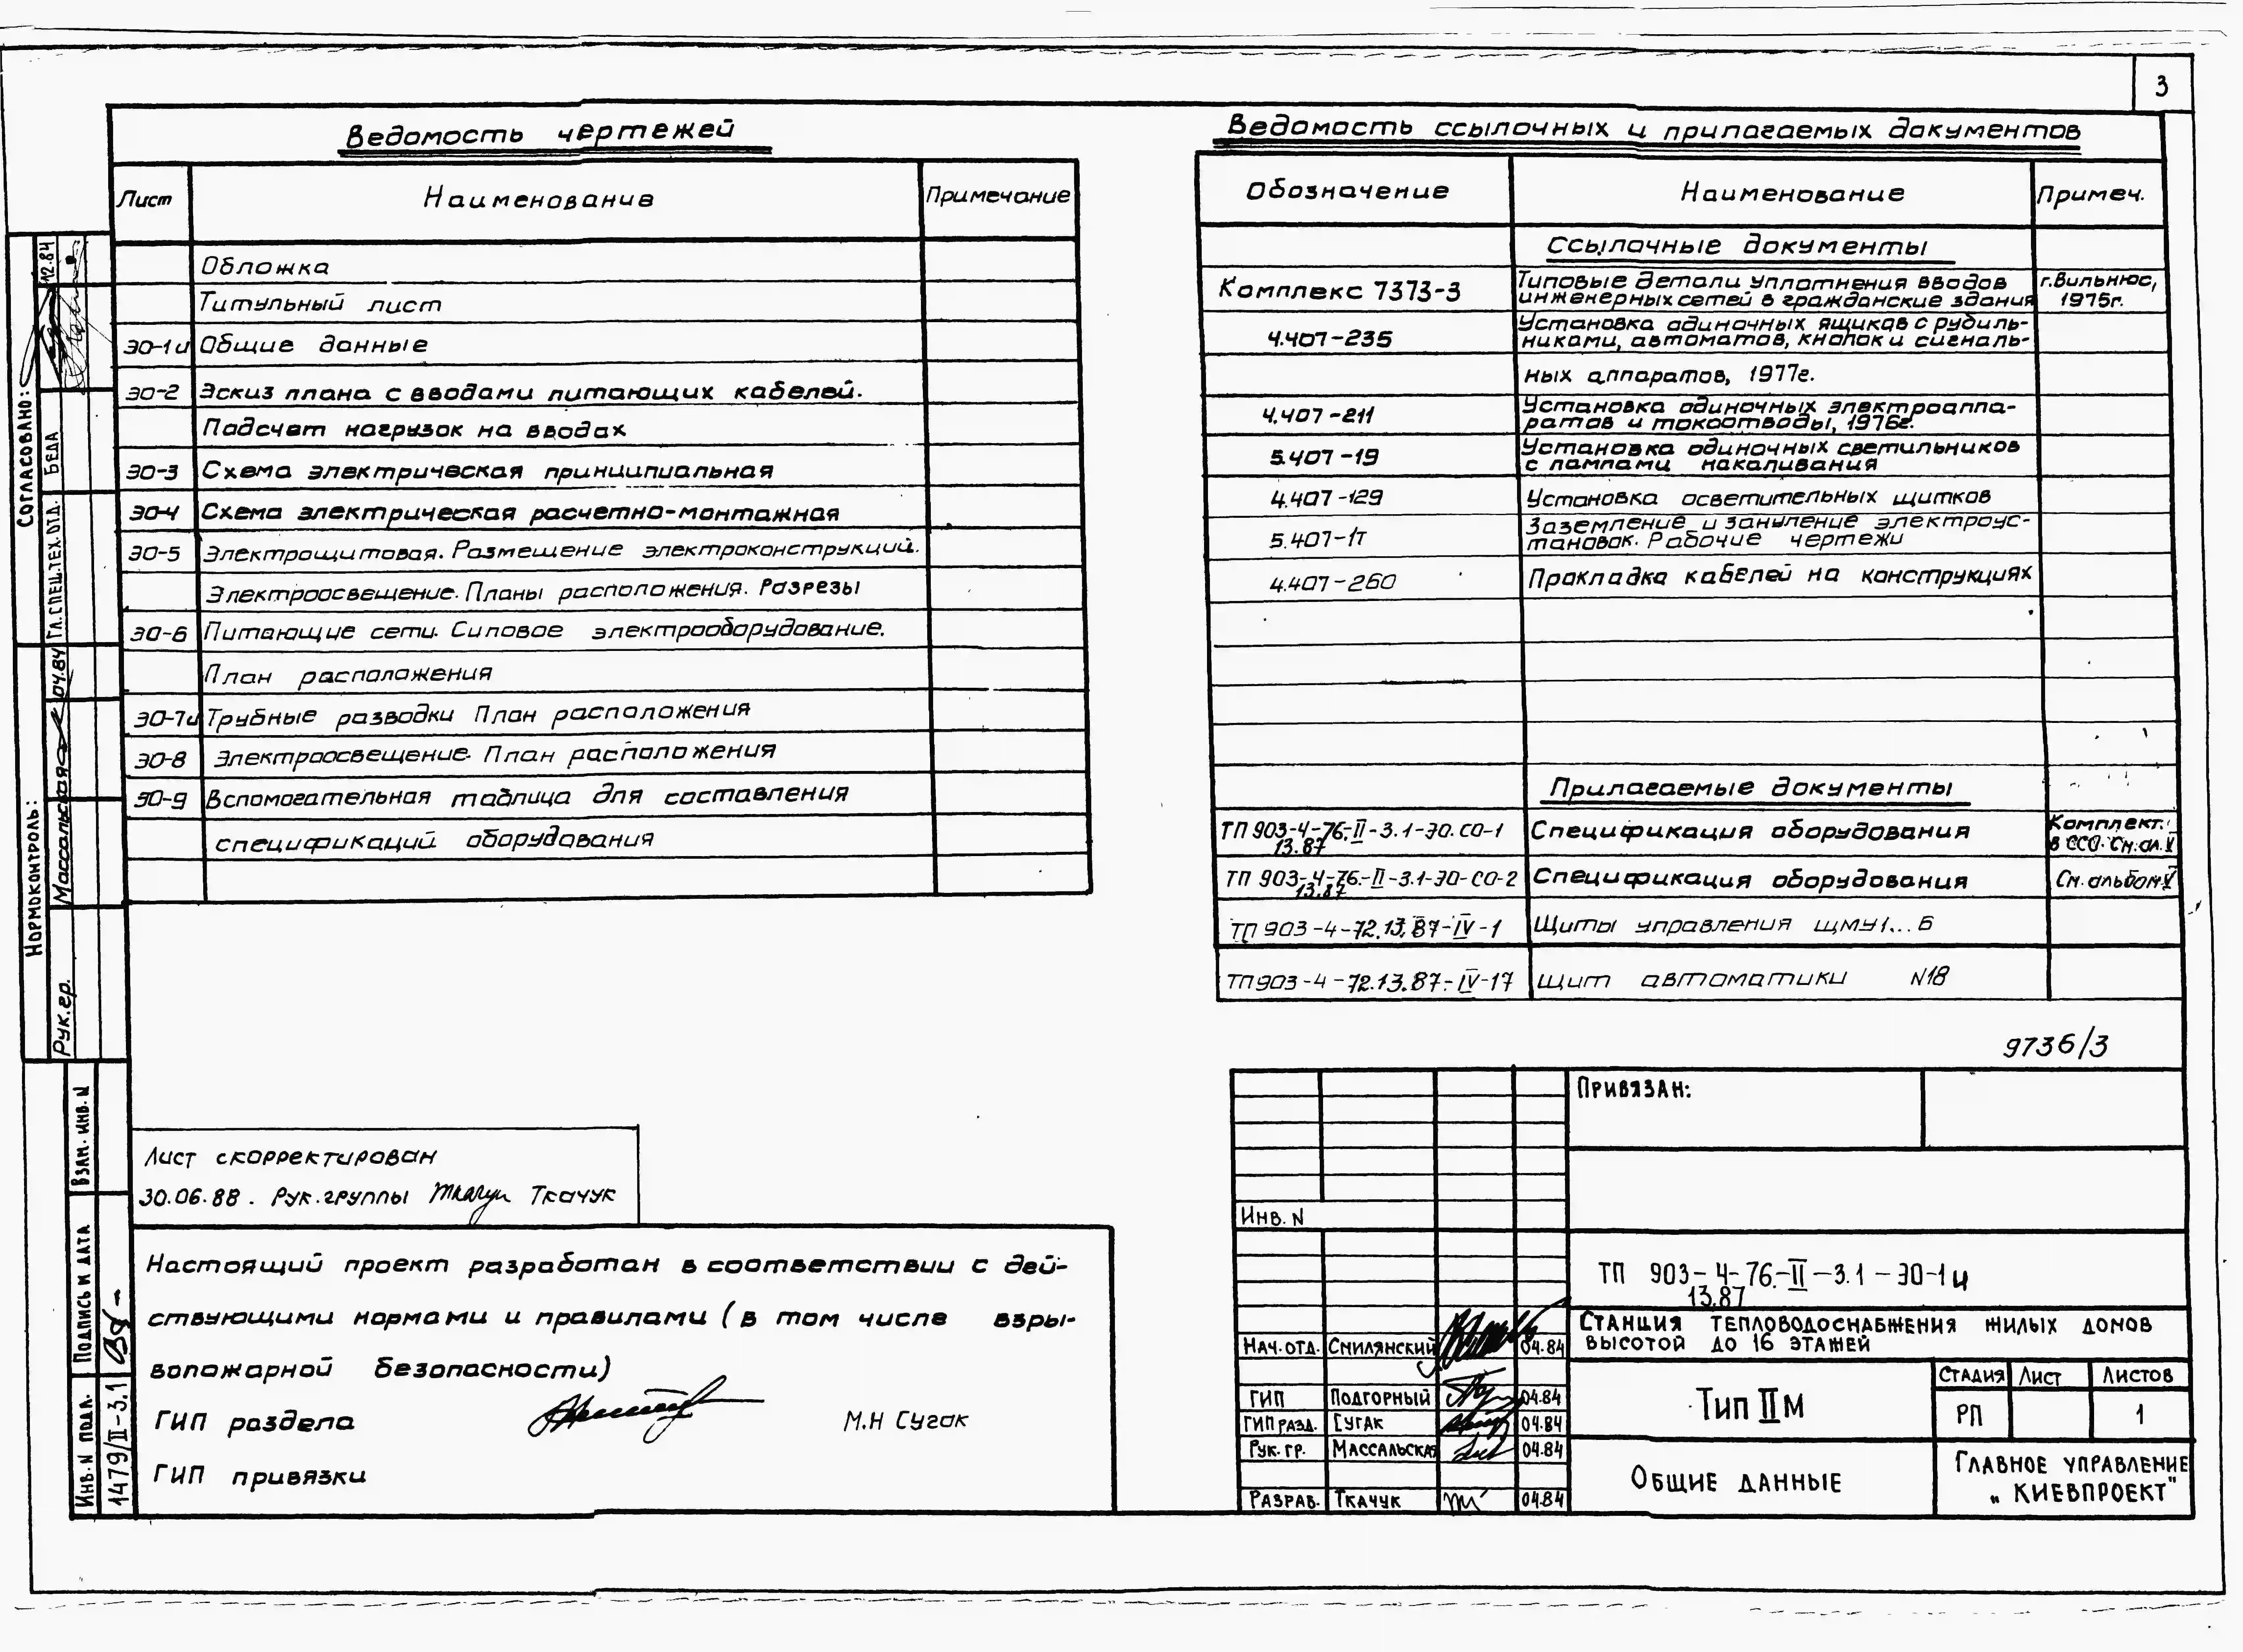 3
Ведомость чертежей
Лист Наименование Примечание
Обложка
Титульный лист
ЭО-1и Общие данные
ЭО-2 Эскиз плана с вводами питающих кабелей.
Подсчет нагрузок на вводах
ЭО-3 Схема электрическая принципиальная
ЭО-4 Схема электрическая расчетно-монтажная
ЭО-5 Электрощитовая. Размещение электроконструкций.
Электроосвещение. Планы расположения. Разрезы
ЭО-6 Питающие сети. Силовое электрооборудование.
План расположения
ЭО-7и Трубные разводки План расположения
ЭО-8 Электроосвещение. План расположения
ЭО-9 Вспомогательная таблица для составления
спецификаций оборудования
Ведомость ссылочных и прилагаемых документов
Обозначение Наименование Примеч.
Ссылочные документы
Комплекс 7373-3 Типовые детали уплотнения вводов г. Вильнюс,
инженерных сетей в гражданские здания 1975г.
4.407-235 Установка одиночных ящиков с рубиль-
никами, автоматов, кнопок и сигналь-
ных аппаратов, 1977г.
4.407-211 Установка одиночных электроаппа-
ратов и токоотводы, 1976г.
5.407-19 Установка одиночных светильников
с лампами накаливания
4.407-129 Установка осветительных щитков
5.407-1т Заземление и зануление электроус-
тановок. Рабочие чертежи
4.407-260 Прокладка кабелей на конструкциях
Прилагаемые документы
ТП 903-4-76.-II-3.1-ЭО.СО-1 Спецификация оборудования Комплект.
13.87 в ССО. См. ал. V
ТП 903-4-76.-II-3.1-ЭО-СО-2 Спецификация оборудования См. альбом V
13.87
ТП 903-4-72.13.87-IV-1 Щиты управления ЩМУ1...6
ТП 903-4-72.13.87-IV-17 Щит автоматики N18
9736/3
Согласовано:
Гл.спец.тех.отд. Беда 12.84
Нормоконтроль:
Рук.гр. Массальская 04.84
Взам. инв. N
Подпись и дата
Инв. N подл. 1479/II-3.1
Лист скорректирован
30.06.88. Рук. группы Ткачук
Настоящий проект разработан в соответствии с дей-
ствующими нормами и правилами (в том числе взры-
вопожарной безопасности)
ГИП раздела М.Н Сугак
ГИП привязки
Привязан:
Инв. N
ТП 903-4-76.-II-3.1-ЭО-1и
13.87
Станция тепловодоснабжения жилых домов
высотой до 16 этажей
Нач. отд. Смилянский 04.84
ГИП Подгорный 04.84
ГИП разд. Сугак 04.84
Рук. гр. Массальская 04.84
Разраб. Ткачук 04.84
Тип IIМ
Стадия Лист Листов
РП 1
Общие данные
Главное управление
„Киевпроект"